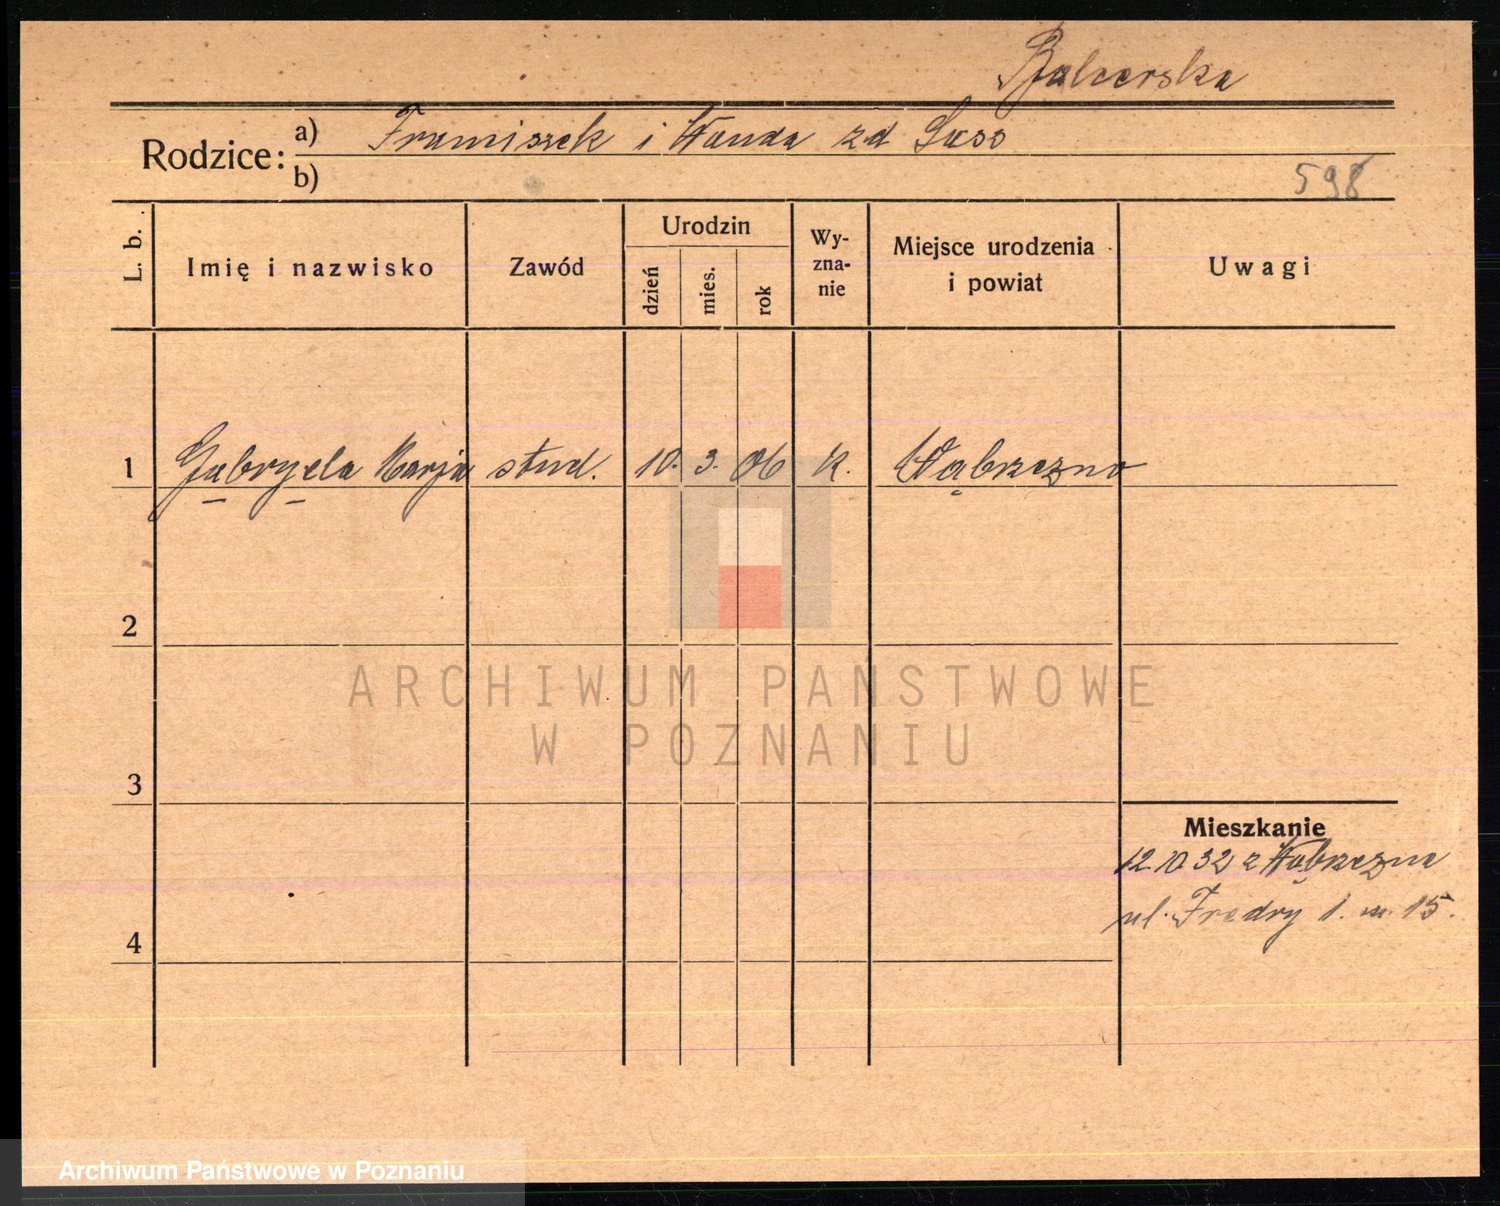 Balcerska
Rodzice: a) Franciszek i Wanda zd
b)
598
L. b. Imię i nazwisko Zawód Urodzin dzień mies. rok Wy-zna-nie Miejsce urodzenia i powiat Uwagi
1 Gabryela Marja stud. 10. 3. 06 k. Wąbrzezno
2
ARCHIWUM PAŃSTWOWE
W POZNANIU
3
Mieszkanie
12.10.32 z Wąbrzezna
ul. Fredry 1. m. 15.
4
Archiwum Państwowe w Poznaniu